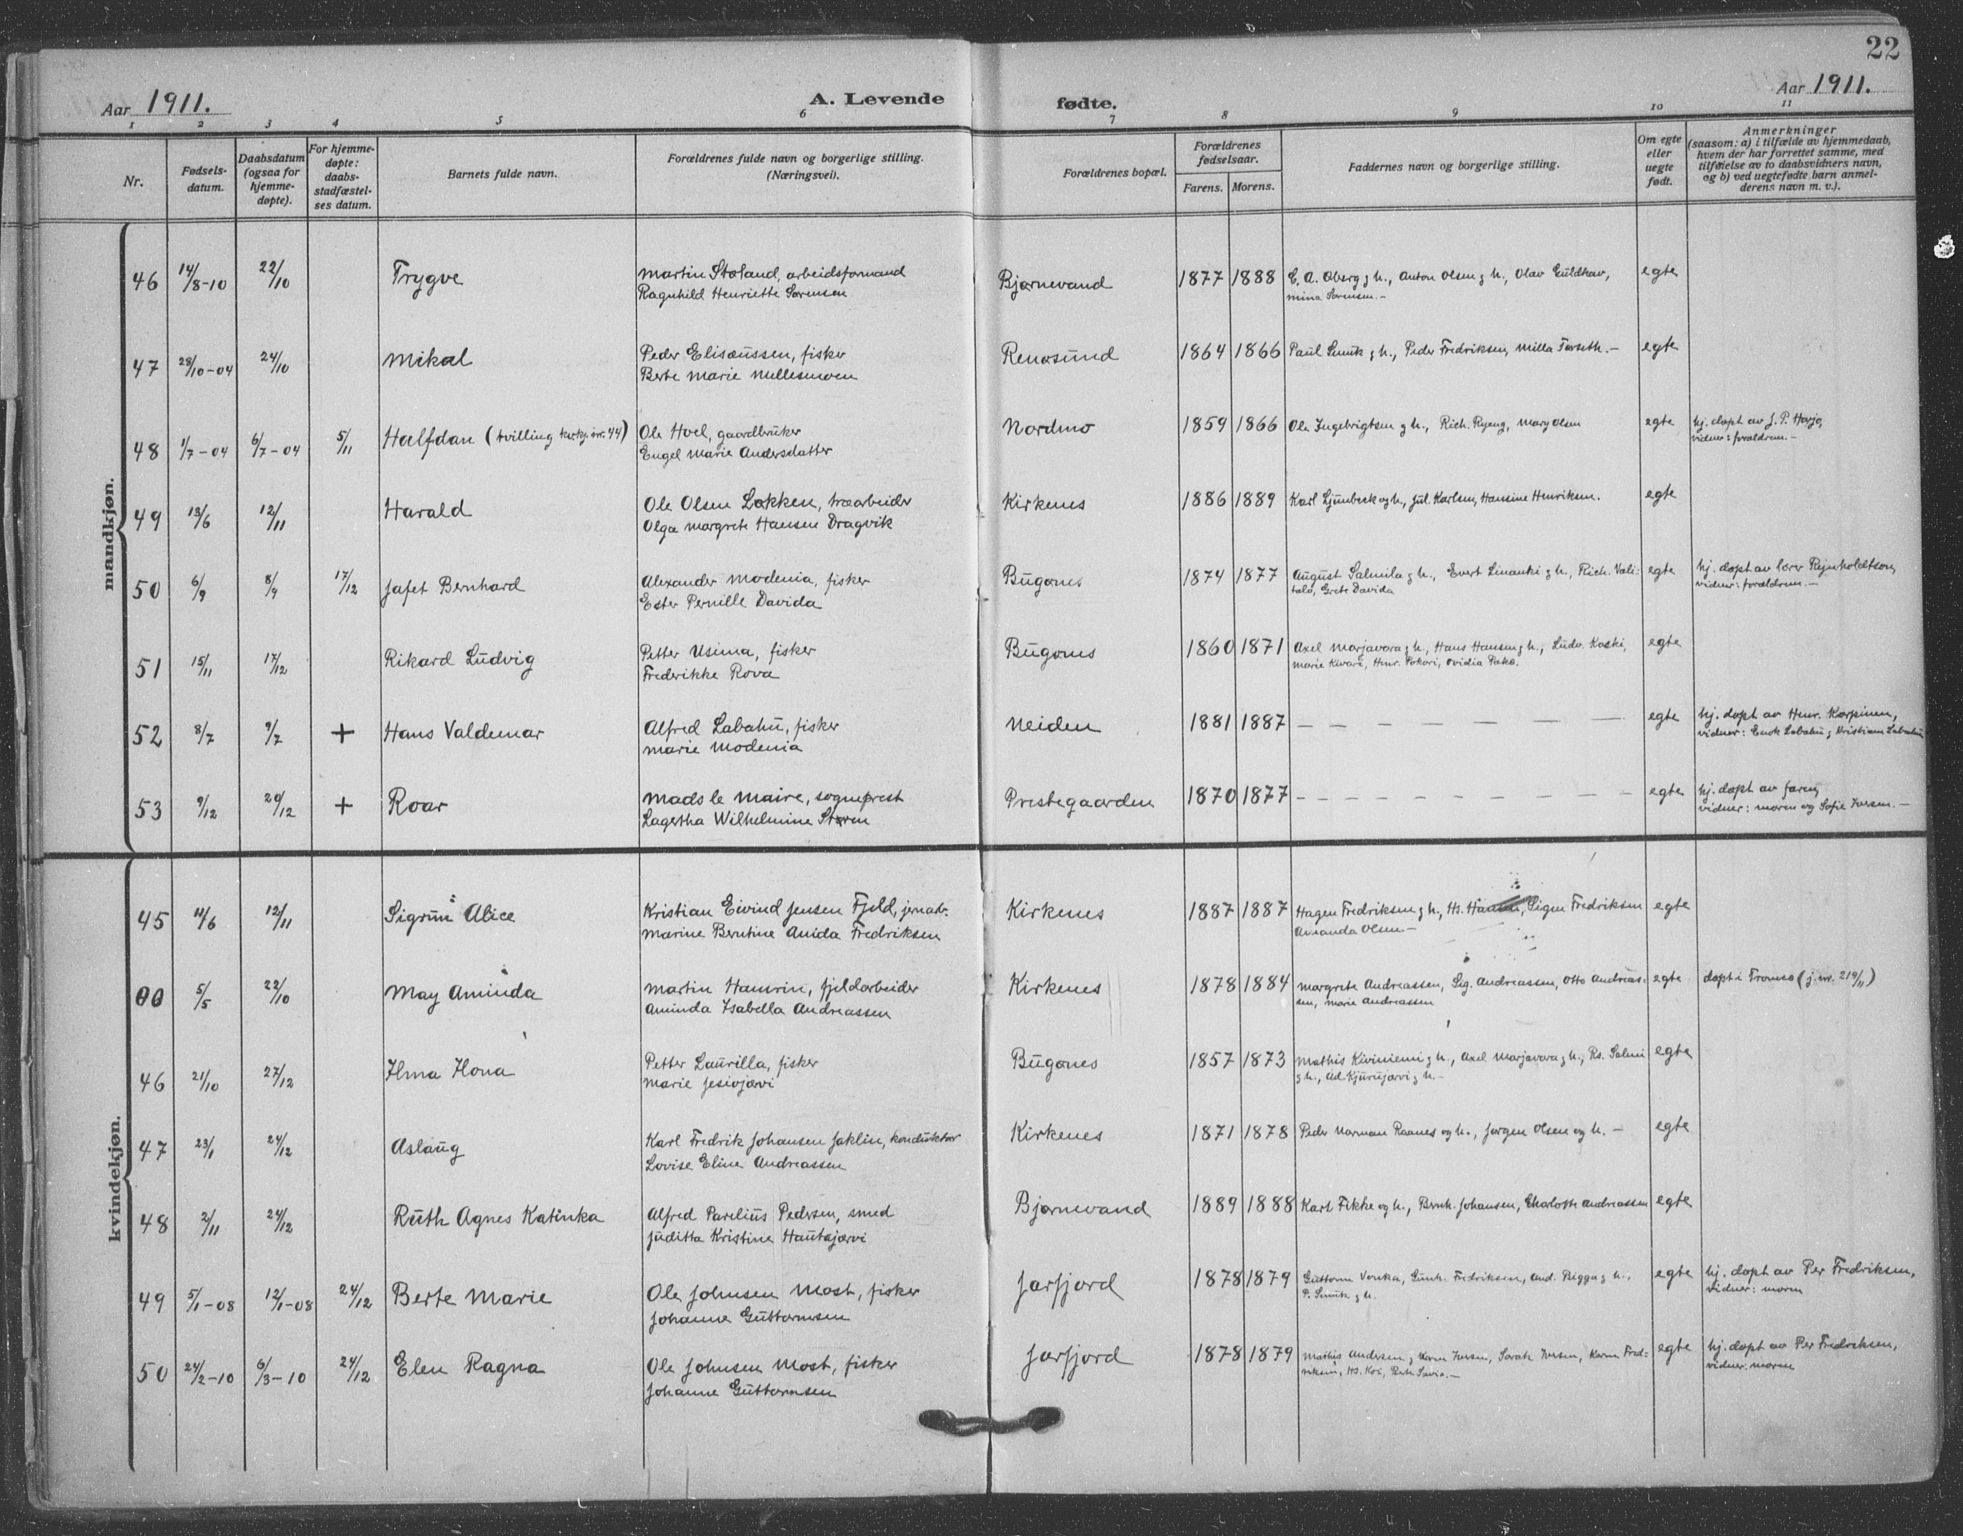 22
Aar 1911.
A. Levende fødte.
Aar 1911.
1 2 3 4 5 6 7 8 9 10 11
Nr.
Fødsels-
datum.
Daabsdatum
(ogsaa for
hjemme-
døpte).
For hjemme-
døpte:
daabs-
stadfæstel-
ses datum.
Barnets fulde navn.
Forældrenes fulde navn og borgerlige stilling.
(Næringsvei).
Forældrenes bopæl.
Forældrenes
fødselsaar.
Farens. Morens.
Faddernes navn og borgerlige stilling.
Om egte
eller
uegte
født.
Anmerkninger
(saasom: a) i tilfælde av hjemmedaab,
hvem der har forrettet samme, med
tilføielse av to daabsvidners navn,
og b) ved uegtefødte barn anmel-
derens navn m. v.).
mandkjøn.
46 14/8-10 22/10 Trygve Martin Støland, arbeidsformand Bjørnevand 1877 1888 C. A. Øberg & h., Anton Olsen & h., Olav Guldhav, egte
Ragnhild Henriette Sørensen Mina Sørensen.-
47 28/10-04 24/10 Mikal Peder Elisæussen, fisker Renøsund 1864 1866 Paul Smuk & h., Peder Fredriksen, Milla Forseth.- egte
Berte Marie Mellesmoen
48 1/7-04 6/7-04 5/11 Halfdan (tvilling kvkj. nr. 44) Ole Hoel, gaardbruker Nordmo 1859 1866 Ole Ingebrigtsen & h., Rich. Ryeng, Mary Olsen egte hj. døpt av J. P. Harjo,
Engel Marie Andersdatter vidner: forældrene.-
49 13/6 12/11 Harald Ole Olsen Løkken, træarbeider Kirkenes 1886 1889 Karl Ljunbeck og h., Jul. Karlsen, Hansine Henriksen. egte
Olga Margrete Hansen Dragvik
50 6/9 8/9 17/12 Jafet Bernhard Alexander Modenia, fisker Bugønes 1874 1877 August Salmila & h., Evert Linanki & h., Rich. Vali- egte hj. døpt av lærer Reinholdtsen,
Ester Pernille Davida talo, Grete Davida vidner: forældrene.-
51 15/11 17/12 Rikard Ludvig Petter Usima, fisker Bugønes 1860 1871 Axel Marjavara & h., Hans Hansen & h., Ludv. Koski, egte
Frederikke Rova Marie Kivari, Henr. Pokori, Ovidia Pako.
52 8/7 9/7 + Hans Valdemar Alfred Labahu, fisker Neiden 1881 1887 - - - - - egte hj. døpt av Henr. Karpinen,
Marie Modenia vidner: Enok Labahu & Kristian Labahu
53 9/12 20/12 + Roar Mads le Maire, sogneprest Prestegaarden 1870 1877 - - - - - - - - - egte hj. døpt av faren,
Lagertha Wilhelmine Støren vidner: moren og Sofie Iversen.-
kvindekjøn.
45 11/6 12/11 Sigrun Alice Kristian Eivind Jensen Fjeld, jernarb. Kirkenes 1887 1887 Hagen Fredriksen & h., Hs. Hansen, Signe Fredriksen egte
Marine Berntine Anida Fredriksen Amanda Olsen-
00 5/5 22/10 May Aminda Martin Hamrin, fjeldarbeider Kirkenes 1878 1884 Margrete Andreassen, Sig. Andreassen, Otto Andreas- egte døpt i Tromsø (j. nr. 219/11)
Aminda Isabella Andreassen sen, Marie Andreassen
46 21/10 27/12 Ilma Ilona Petter Laurilla, fisker Bugønes 1857 1873 Mathis Kiviniemi & h., Axel Marjavara & h., Rs. Salmi egte
Marie Jesiøjærvi & h., Ad. Kjurujærvi & h.-
47 23/1 24/12 Aslaug Karl Fredrik Johansen Jaklin, konduktør Kirkenes 1871 1878 Peder Norman Raanes og h., Jørgen Olsen og h.- egte
Lovise Eline Andreassen
48 2/11 24/12 Ruth Agnes Katinka Alfred Parelius Pedersen, smed Bjørnevand 1889 1888 Karl Fikke og h., Bernh. Johansen, Charlotte Andreassen egte
Juditta Kristine Hautajærvi
49 5/1-08 12/1-08 24/12 Berte Marie Ole Johnsen Most, fisker Jarfjord 1878 1879 Guttorm Vonka, Gunh. Fredriksen, And. Rigga & h., egte hj. døpt av Per Fredriksen,
Johanne Guttormsen P. Smuk & h. vidner: moren
50 24/2-10 6/3-10 24/12 Elen Ragna Ole Johnsen Most, fisker Jarfjord 1878 1879 Mathis Andersen, Karen Iversen, Sarah Iversen, Karen Fred- egte hj. døpt av Per Fredriksen,
Johanne Guttormsen riksen, Hs. Koi, Savio.- vidner: moren